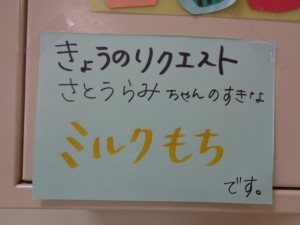 きょうのリクエスト
さとうらみちゃんのすきな
ミルクもち
です。